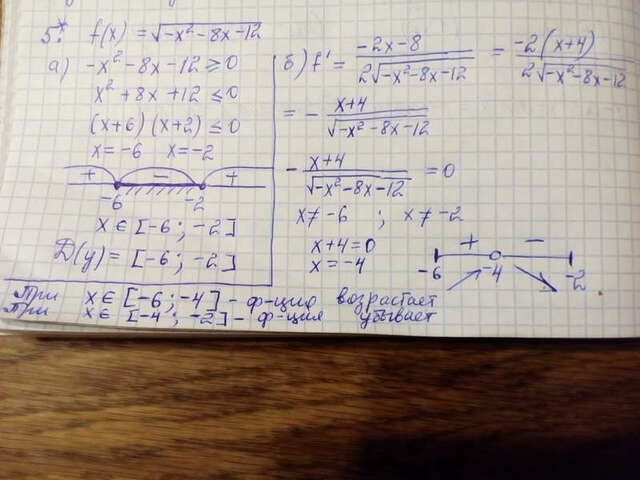 5*. f(x) = √(-x² - 8x - 12)
а) -x² - 8x - 12 ≥ 0
x² + 8x + 12 ≤ 0
(x+6)(x+2) ≤ 0
x = -6 x = -2
+ - +
-6 -2
x ∈ [-6; -2]
D(y) = [-6; -2]
б) f' = (-2x-8)/(2√(-x²-8x-12)) = (-2(x+4))/(2√(-x²-8x-12))
= - (x+4)/√(-x²-8x-12)
- (x+4)/√(-x²-8x-12) = 0
x ≠ -6 ; x ≠ -2
x+4=0
x = -4
+ -
-6 -4 -2
При x ∈ [-6; -4] - ф-цию возрастает
При x ∈ [-4; -2] - ф-ция убывает